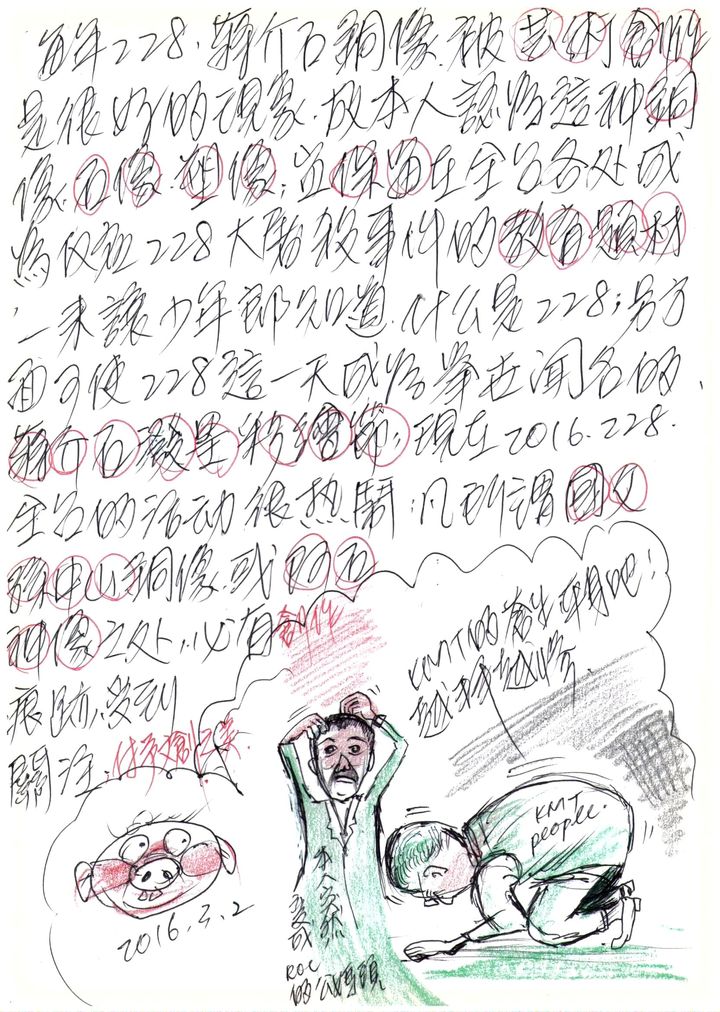 每年228.蔣介石銅像.被芸術創作
是很好的現象.故本人認為這种銅
像.石像.塑像;宜保留在全台各处成
為仅祖228大屠殺事件的教育題材
一來讓少年郎知道.什么是228;另方
面可使228這一天成為舉世闻名的.
蔣介石 彩繪節;現在2016.228.
全台的活动很热鬧;凡所謂國父
孫中山銅像.或
神像之处.必有創作
痕跡.受到
關注.
KMT的 吧!
越 越
KMT
people.
本人突然
变成
ROC
的公
2016.3.2